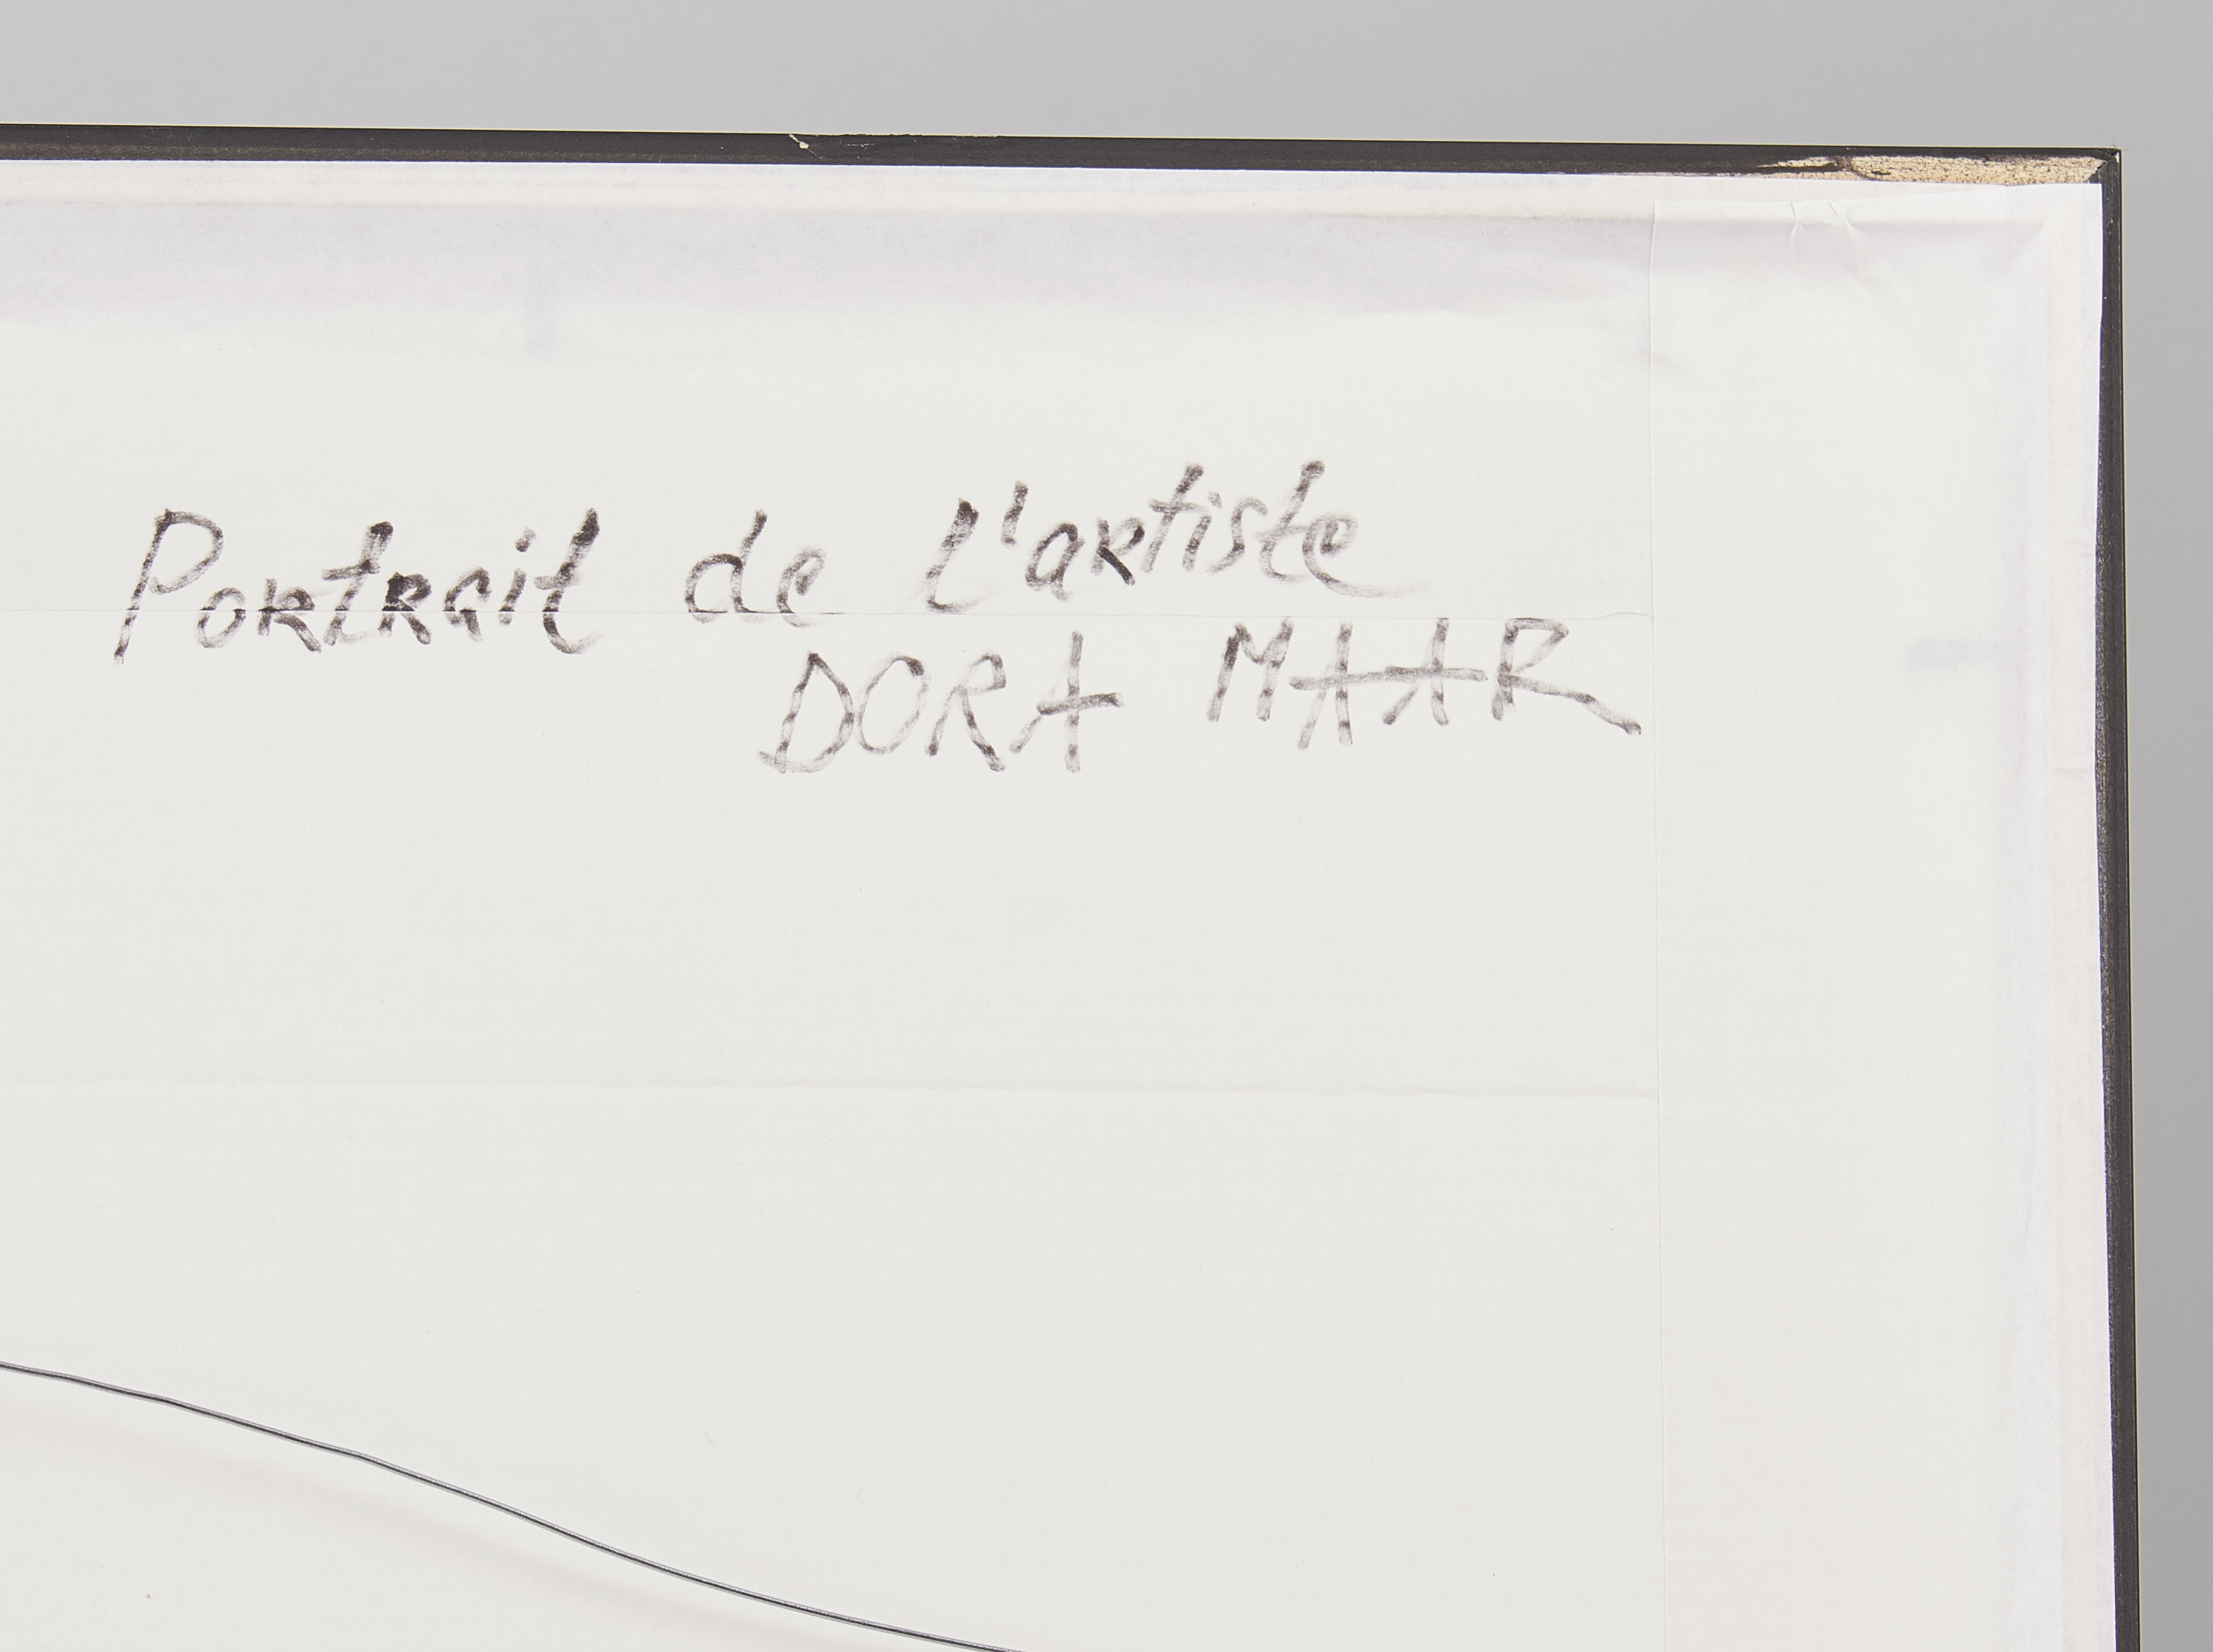 Portrait de l'artiste
DORA MAAR